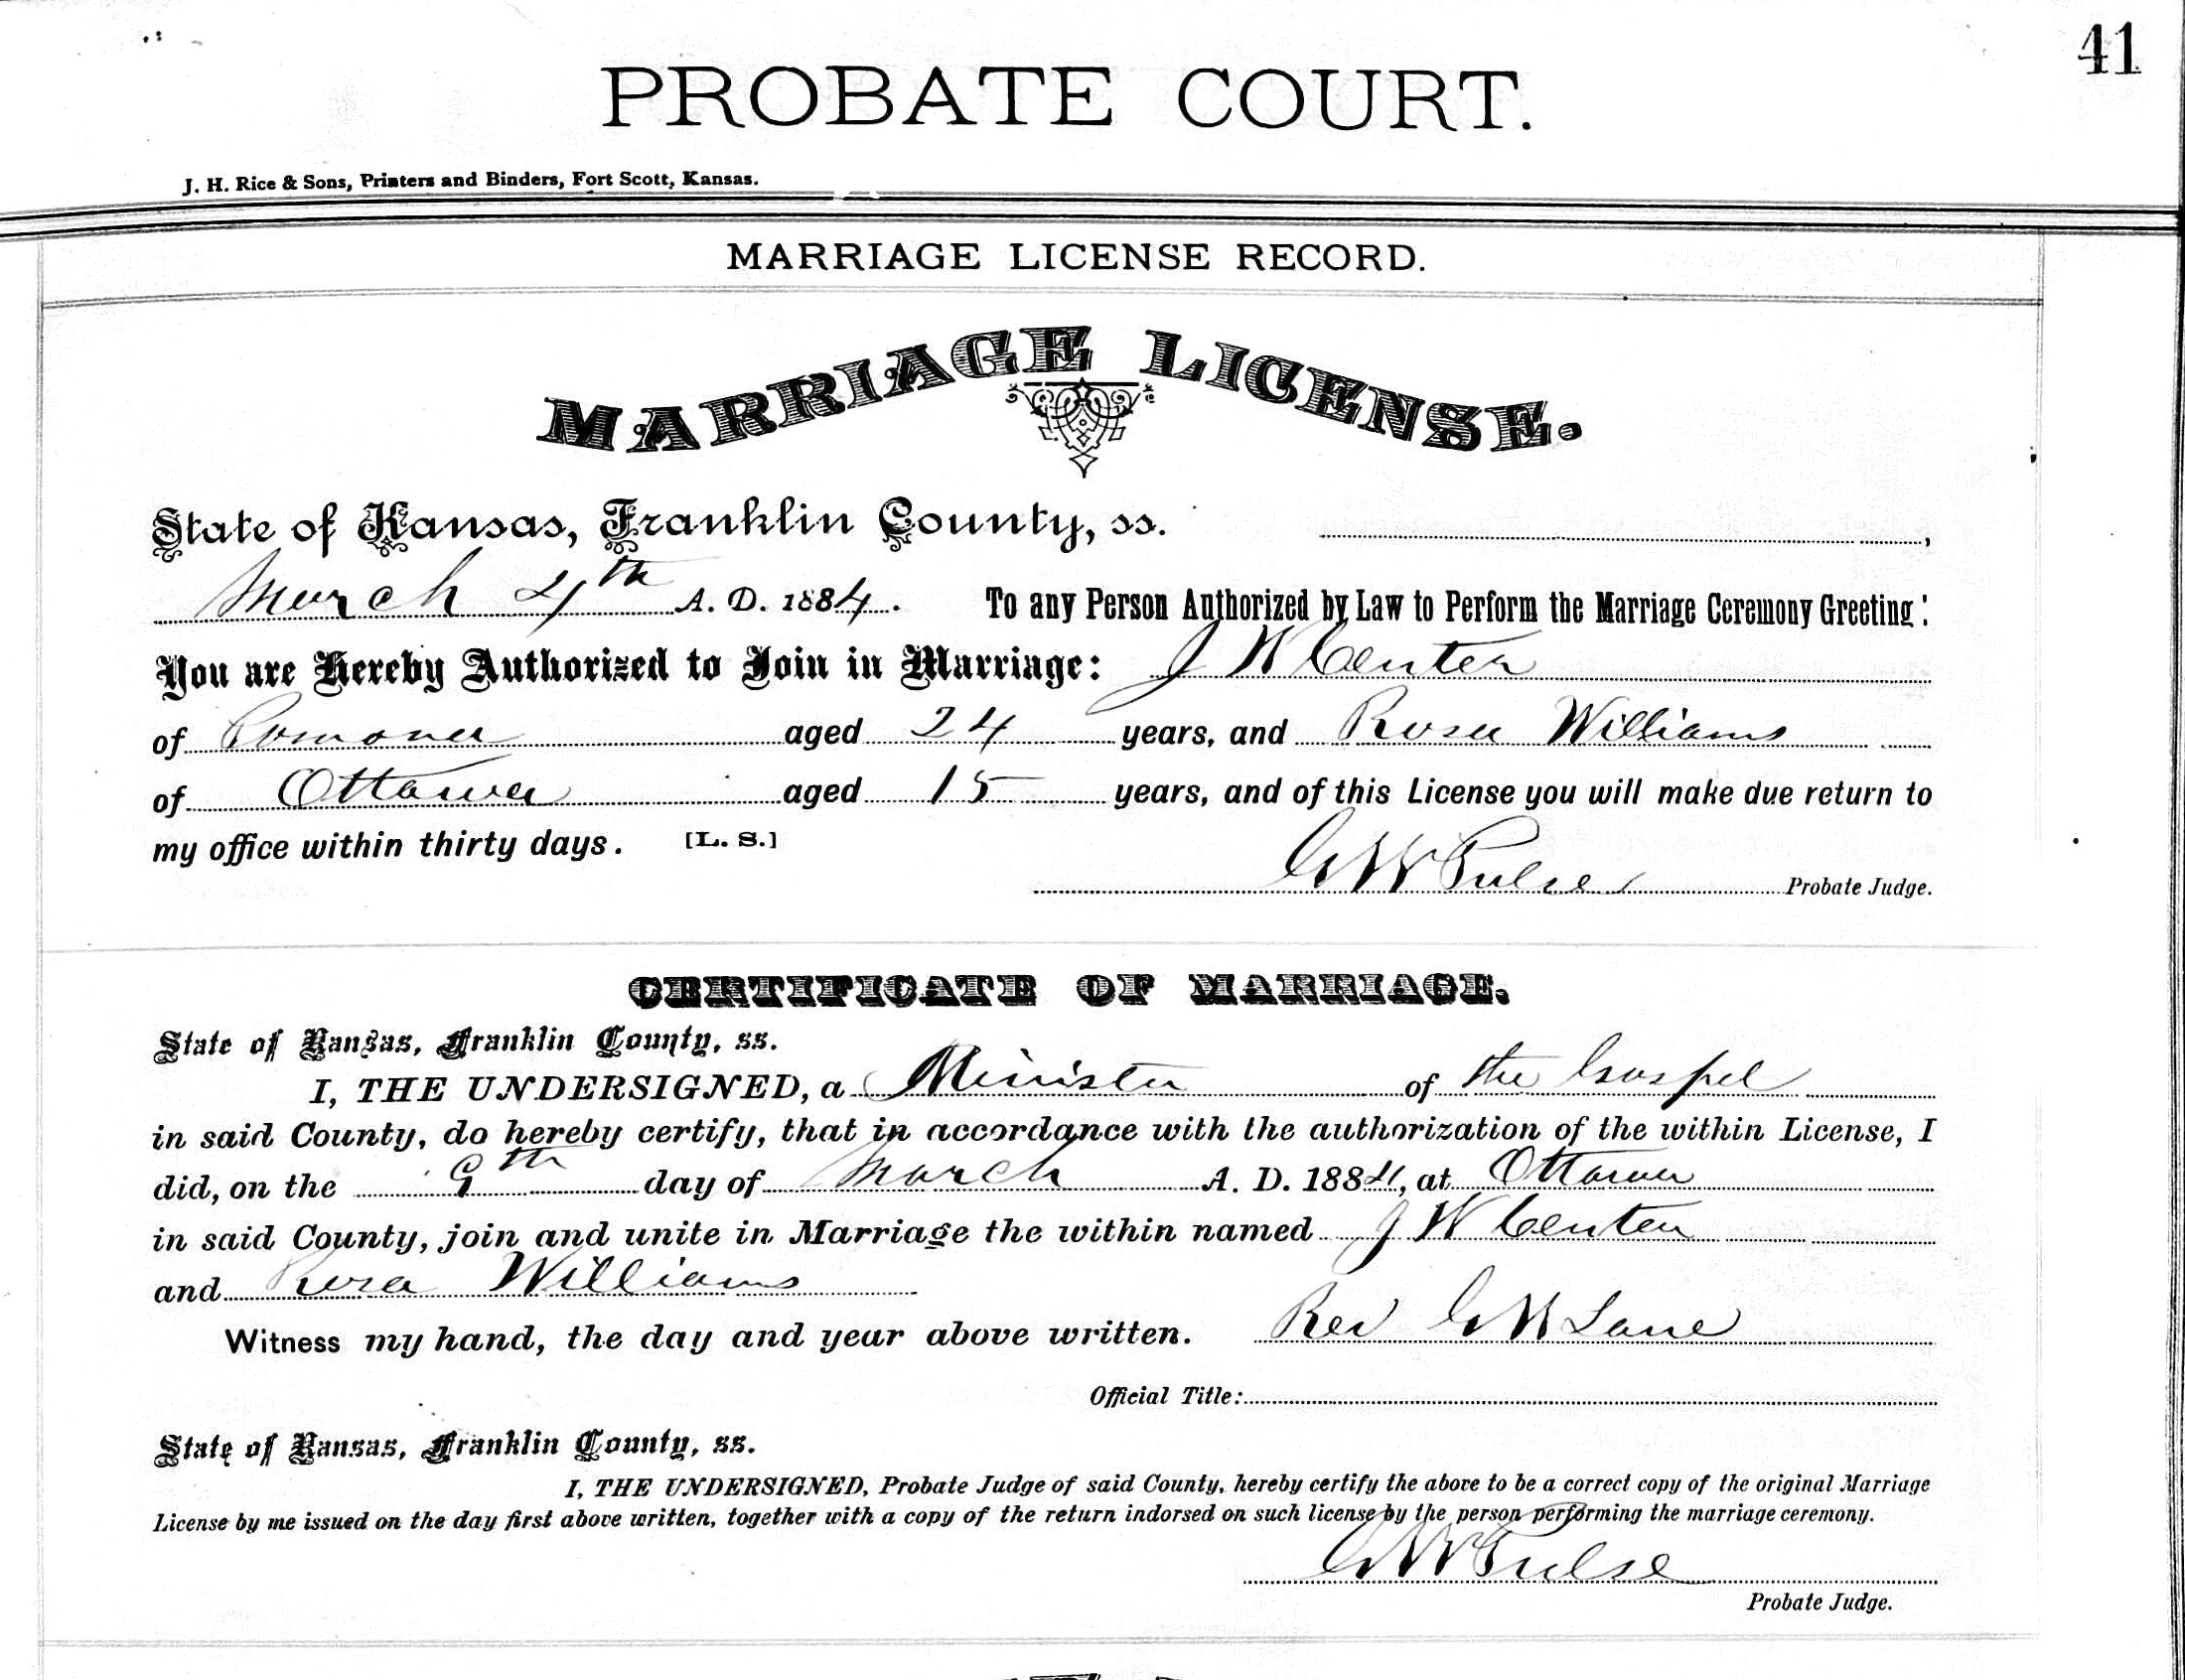 41
PROBATE COURT.
J. H. Rice & Sons, Printers and Binders, Fort Scott, Kansas.
MARRIAGE LICENSE RECORD.
MARRIAGE LICENSE.
State of Kansas, Franklin County, ss. ,
March 4th A. D. 1884. To any Person Authorized by Law to Perform the Marriage Ceremony Greeting:
You are Hereby Authorized to Join in Marriage: J W Center
of Pomona aged 24 years, and Rosa Williams
of Ottawa aged 15 years, and of this License you will make due return to
my office within thirty days. [L. S.]
G W Pulse Probate Judge.
CERTIFICATE OF MARRIAGE.
State of Kansas, Franklin County, ss.
I, THE UNDERSIGNED, a Minister of the Gospel
in said County, do hereby certify, that in accordance with the authorization of the within License, I
did, on the 9th day of March A. D. 1884, at Ottawa
in said County, join and unite in Marriage the within named J W Center
and Rosa Williams
Witness my hand, the day and year above written. Rev G W Lane
Official Title:
State of Kansas, Franklin County, ss.
I, THE UNDERSIGNED, Probate Judge of said County, hereby certify the above to be a correct copy of the original Marriage
License by me issued on the day first above written, together with a copy of the return indorsed on such license by the person performing the marriage ceremony.
G W Pulse
Probate Judge.